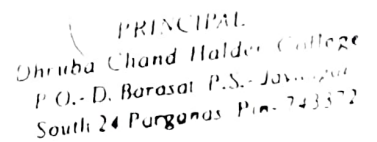 PRINCIPAL
Dhruba Chand Halder College
P.O.- D. Barasat P.S.- 
South 24 Parganas Pin- 743372